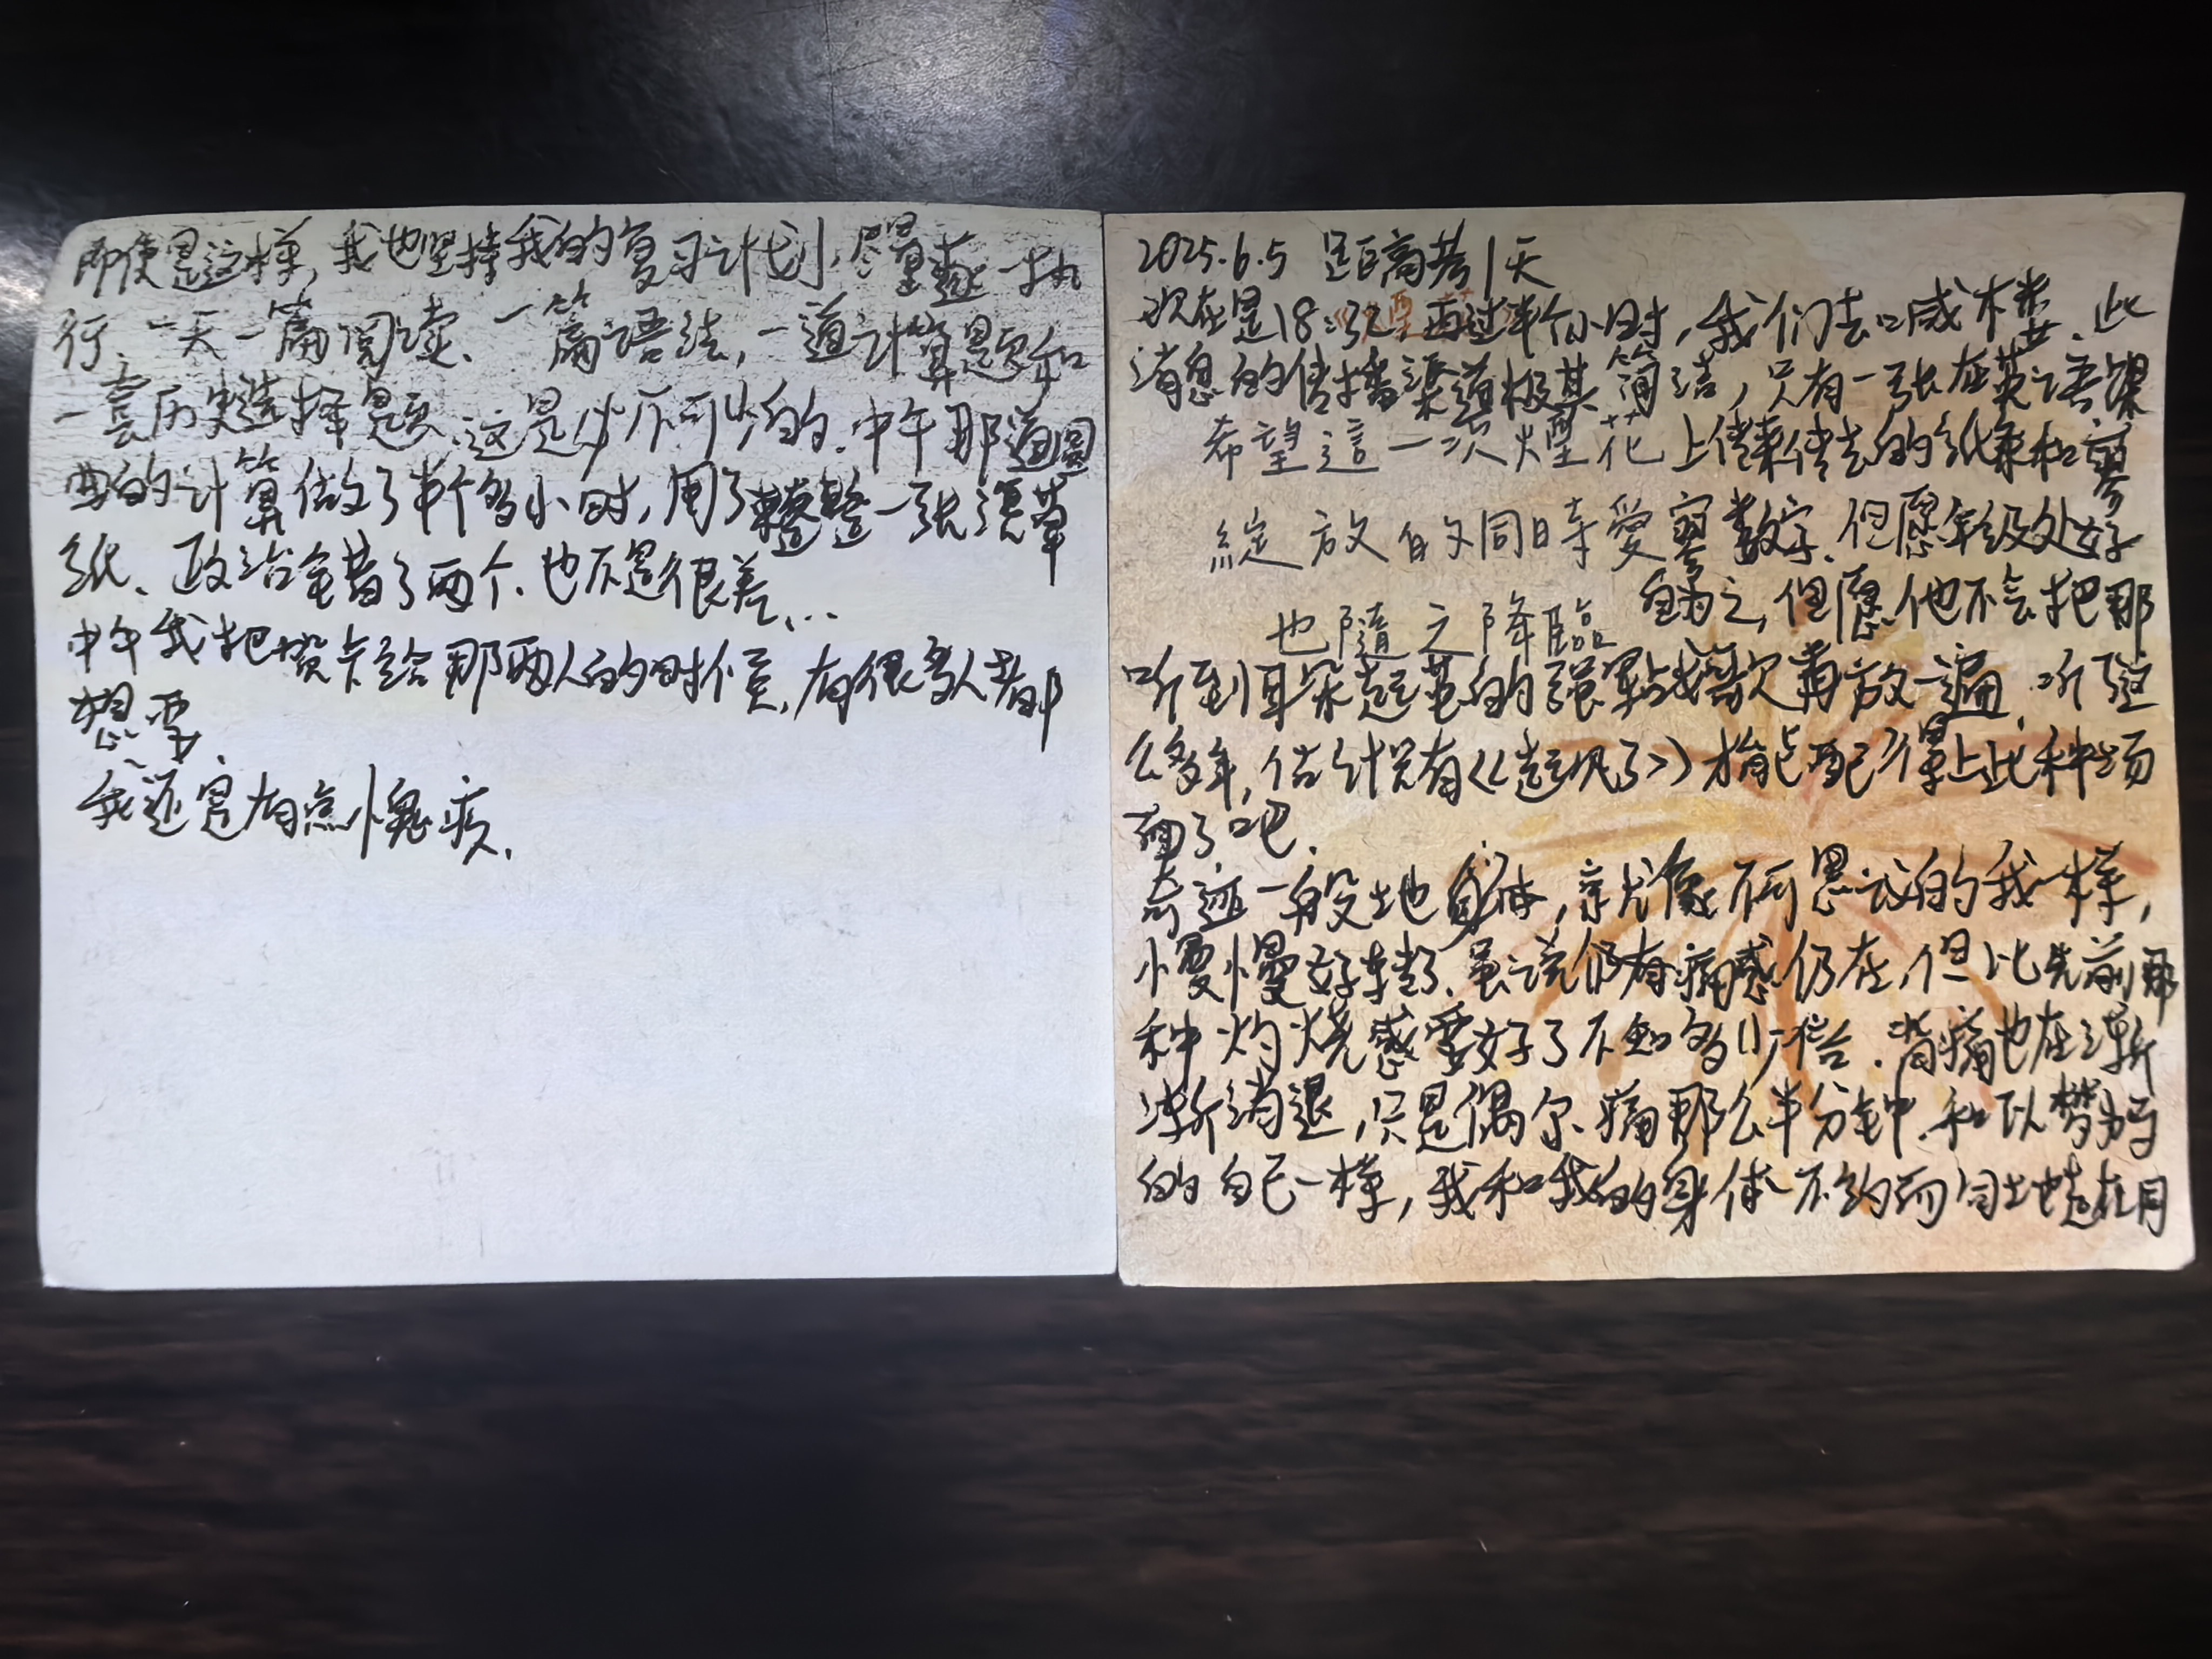 即使是这样,我也坚持我的复习计划,尽量逐一执
行、一天一篇阅读、一篇语法,一道计算题和
一套历史选择题、这是必不可少的.中午那道圆
曲的计算做了半个多小时,用了整整一张演草
纸、政治全错了两个.也不是很差...
中午我把贺卡给那两人的时候,有很多人都
想要.
我还是有点愧疚.
2025.6.5 距高考1天
现在是18:32 再过半个小时,我们去喊楼.此
消息的传播渠道极其简洁,只有一张在英语课
希望這一次煙花
上传来传去的纸条和寥
綻放的同時愛
寥数字.但愿年级处好
也隨之降臨
自为之,但愿他不会把那
听到耳朵起茧的励志歌再放一遍.听了这
么多年,估计只有《起风了》才能配得上此种场
面了吧.
奇迹一般地身体,就像不可思议的我一样,
慢慢好转了.虽说仍有痛感仍在,但比先前那
种灼烧感要好了不知多少倍.背痛也在渐
渐消退,只是偶尔痛那么半分钟.和以梦为马
的自己一样,我和我的身体不约而同地赶在同